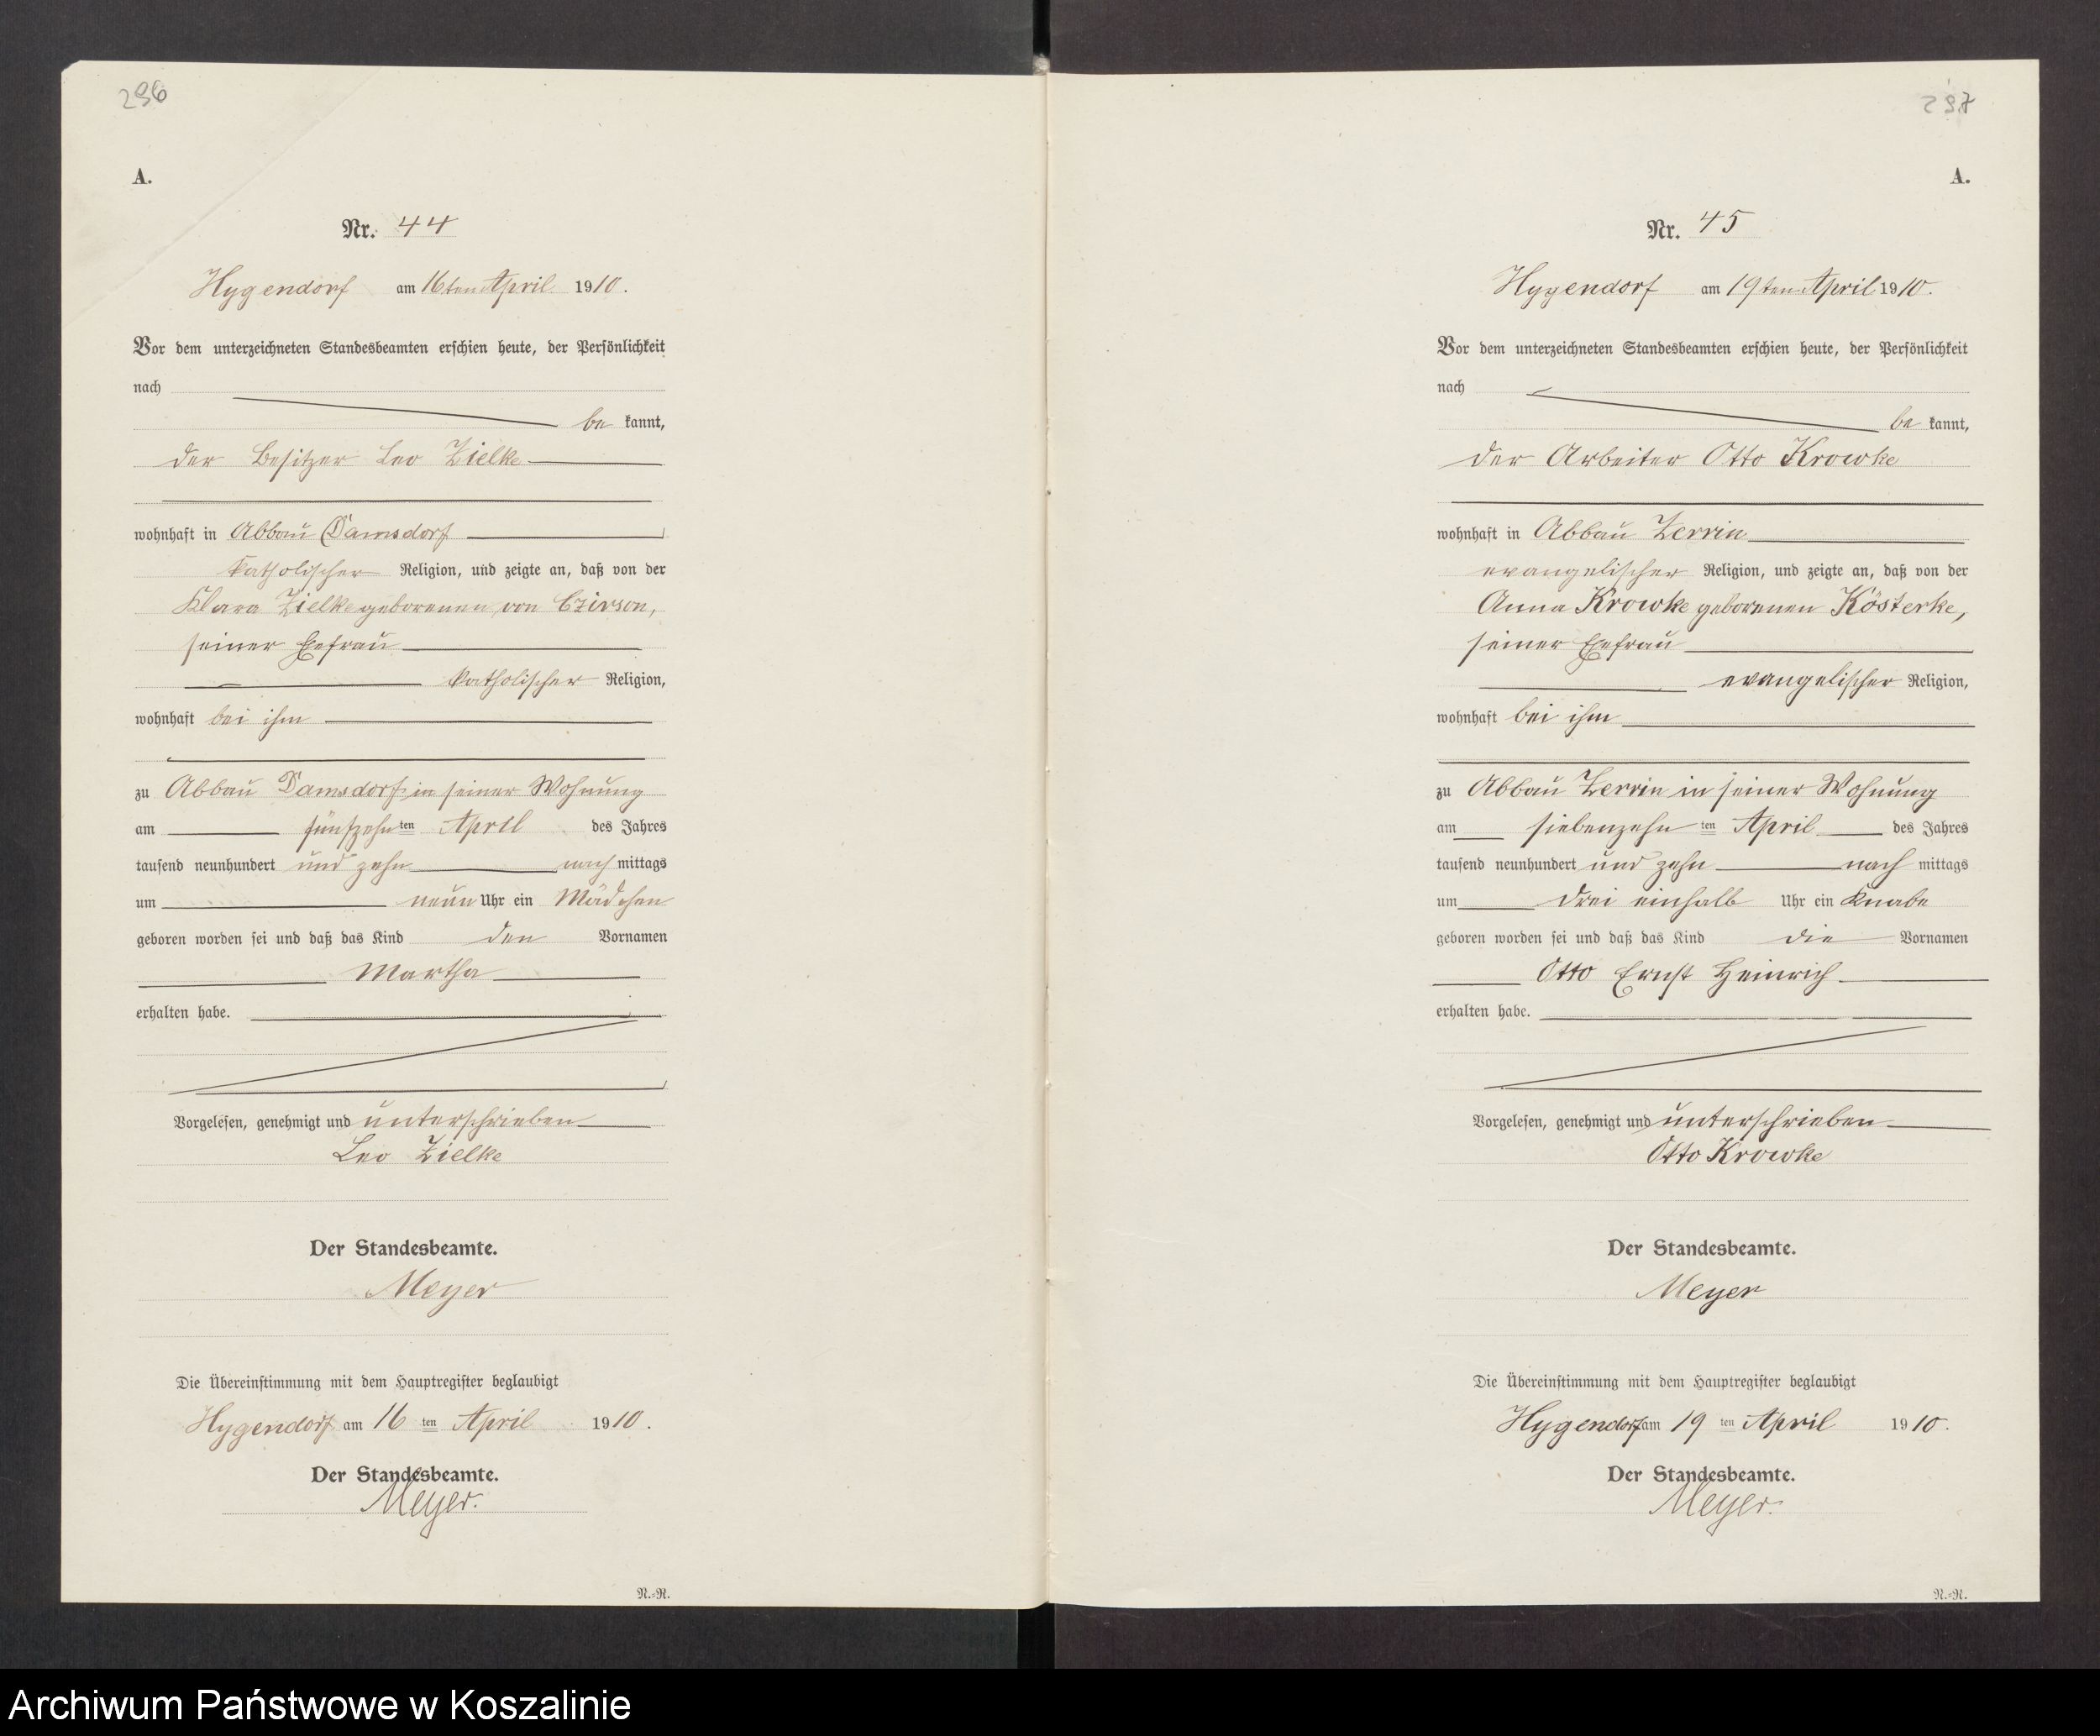 296
A.
Nr. 44
Hygendorf am 16ten April 1910.
Vor dem unterzeichneten Standesbeamten erschien heute, der Persönlichkeit
nach
be kannt,
der Besitzer Leo Zielke
wohnhaft in Abbau Damsdorf
katholischer Religion, und zeigte an, daß von der
Klara Zielke geborenen von Czirson,
seiner Ehefrau
katholischer Religion,
wohnhaft bei ihm
zu Abbau Damsdorf in seiner Wohnung
am fünfzehn ten April des Jahres
tausend neunhundert und zehn nach mittags
um neun Uhr ein Mädchen
geboren worden sei und daß das Kind den Vornamen
Martha
erhalten habe.
Vorgelesen, genehmigt und unterschrieben
Leo Zielke
Der Standesbeamte.
Meyer
Die Übereinstimmung mit dem Hauptregister beglaubigt
Hygendorf am 16 ten April 1910.
Der Standesbeamte.
Meyer.
N.-R.
297
A.
Nr. 45
Hygendorf am 19ten April 1910.
Vor dem unterzeichneten Standesbeamten erschien heute, der Persönlichkeit
nach
be kannt,
der Arbeiter Otto Krowke
wohnhaft in Abbau Zerrin
evangelischer Religion, und zeigte an, daß von der
Anna Krowke geborenen Kösterke,
seiner Ehefrau
evangelischer Religion,
wohnhaft bei ihm
zu Abbau Zerrin in seiner Wohnung
am siebenzehn ten April des Jahres
tausend neunhundert und zehn nach mittags
um drei einhalb Uhr ein Knabe
geboren worden sei und daß das Kind die Vornamen
Otto Ernst Heinrich
erhalten habe.
Vorgelesen, genehmigt und unterschrieben
Otto Krowke
Der Standesbeamte.
Meyer
Die Übereinstimmung mit dem Hauptregister beglaubigt
Hygendorf am 19 ten April 1910.
Der Standesbeamte.
Meyer.
N.-R.
Archiwum Państwowe w Koszalinie